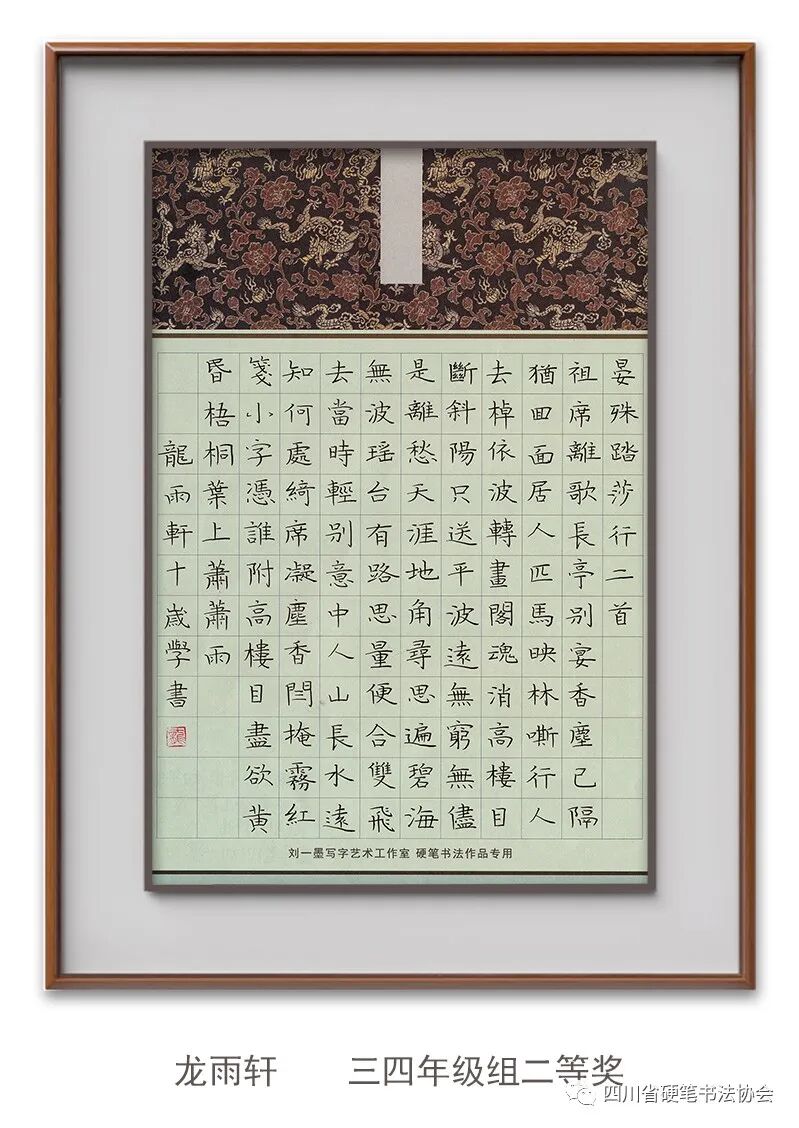 晏殊踏莎行二首
祖席離歌長亭别宴香塵已隔
猶囬面居人匹馬映林嘶行人
去棹依波轉畫閣魂消高樓目
斷斜陽只送平波遠無窮無儘
是離愁天涯地角尋思遍碧海
無波瑶台有路思量便合雙飛
去當時輕别意中人山長水遠
知何處綺席凝塵香閆掩霧紅
箋小字憑誰附高樓目盡欲黄
昬梧桐葉上蕭蕭雨
龍雨軒十歲學書
刘一墨写字艺术工作室 硬笔书法作品专用
龙雨轩 三四年级组二等奖
四川省硬笔书法协会